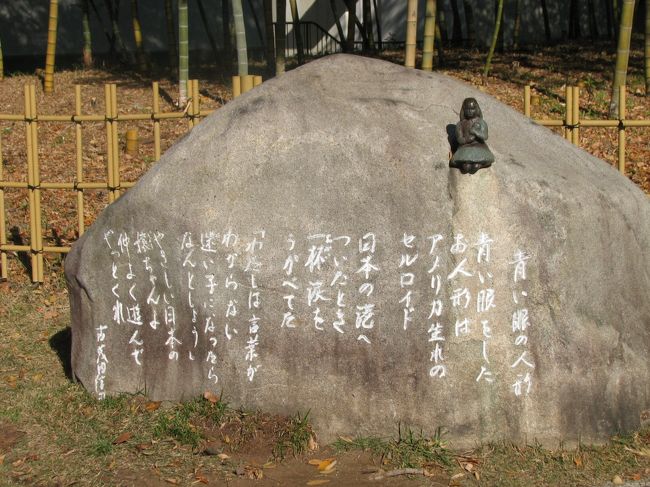 青い眼の人形
青い眼をした
お人形は
アメリカ生れの
セルロイド
日本の港へ
ついたとき
一杯涙を
うかべてた
「わたしは言葉が
わからない
迷い子になったら
なんとしよう」
やさしい日本の
嬢ちゃんよ
仲よく遊んで
やっとくれ